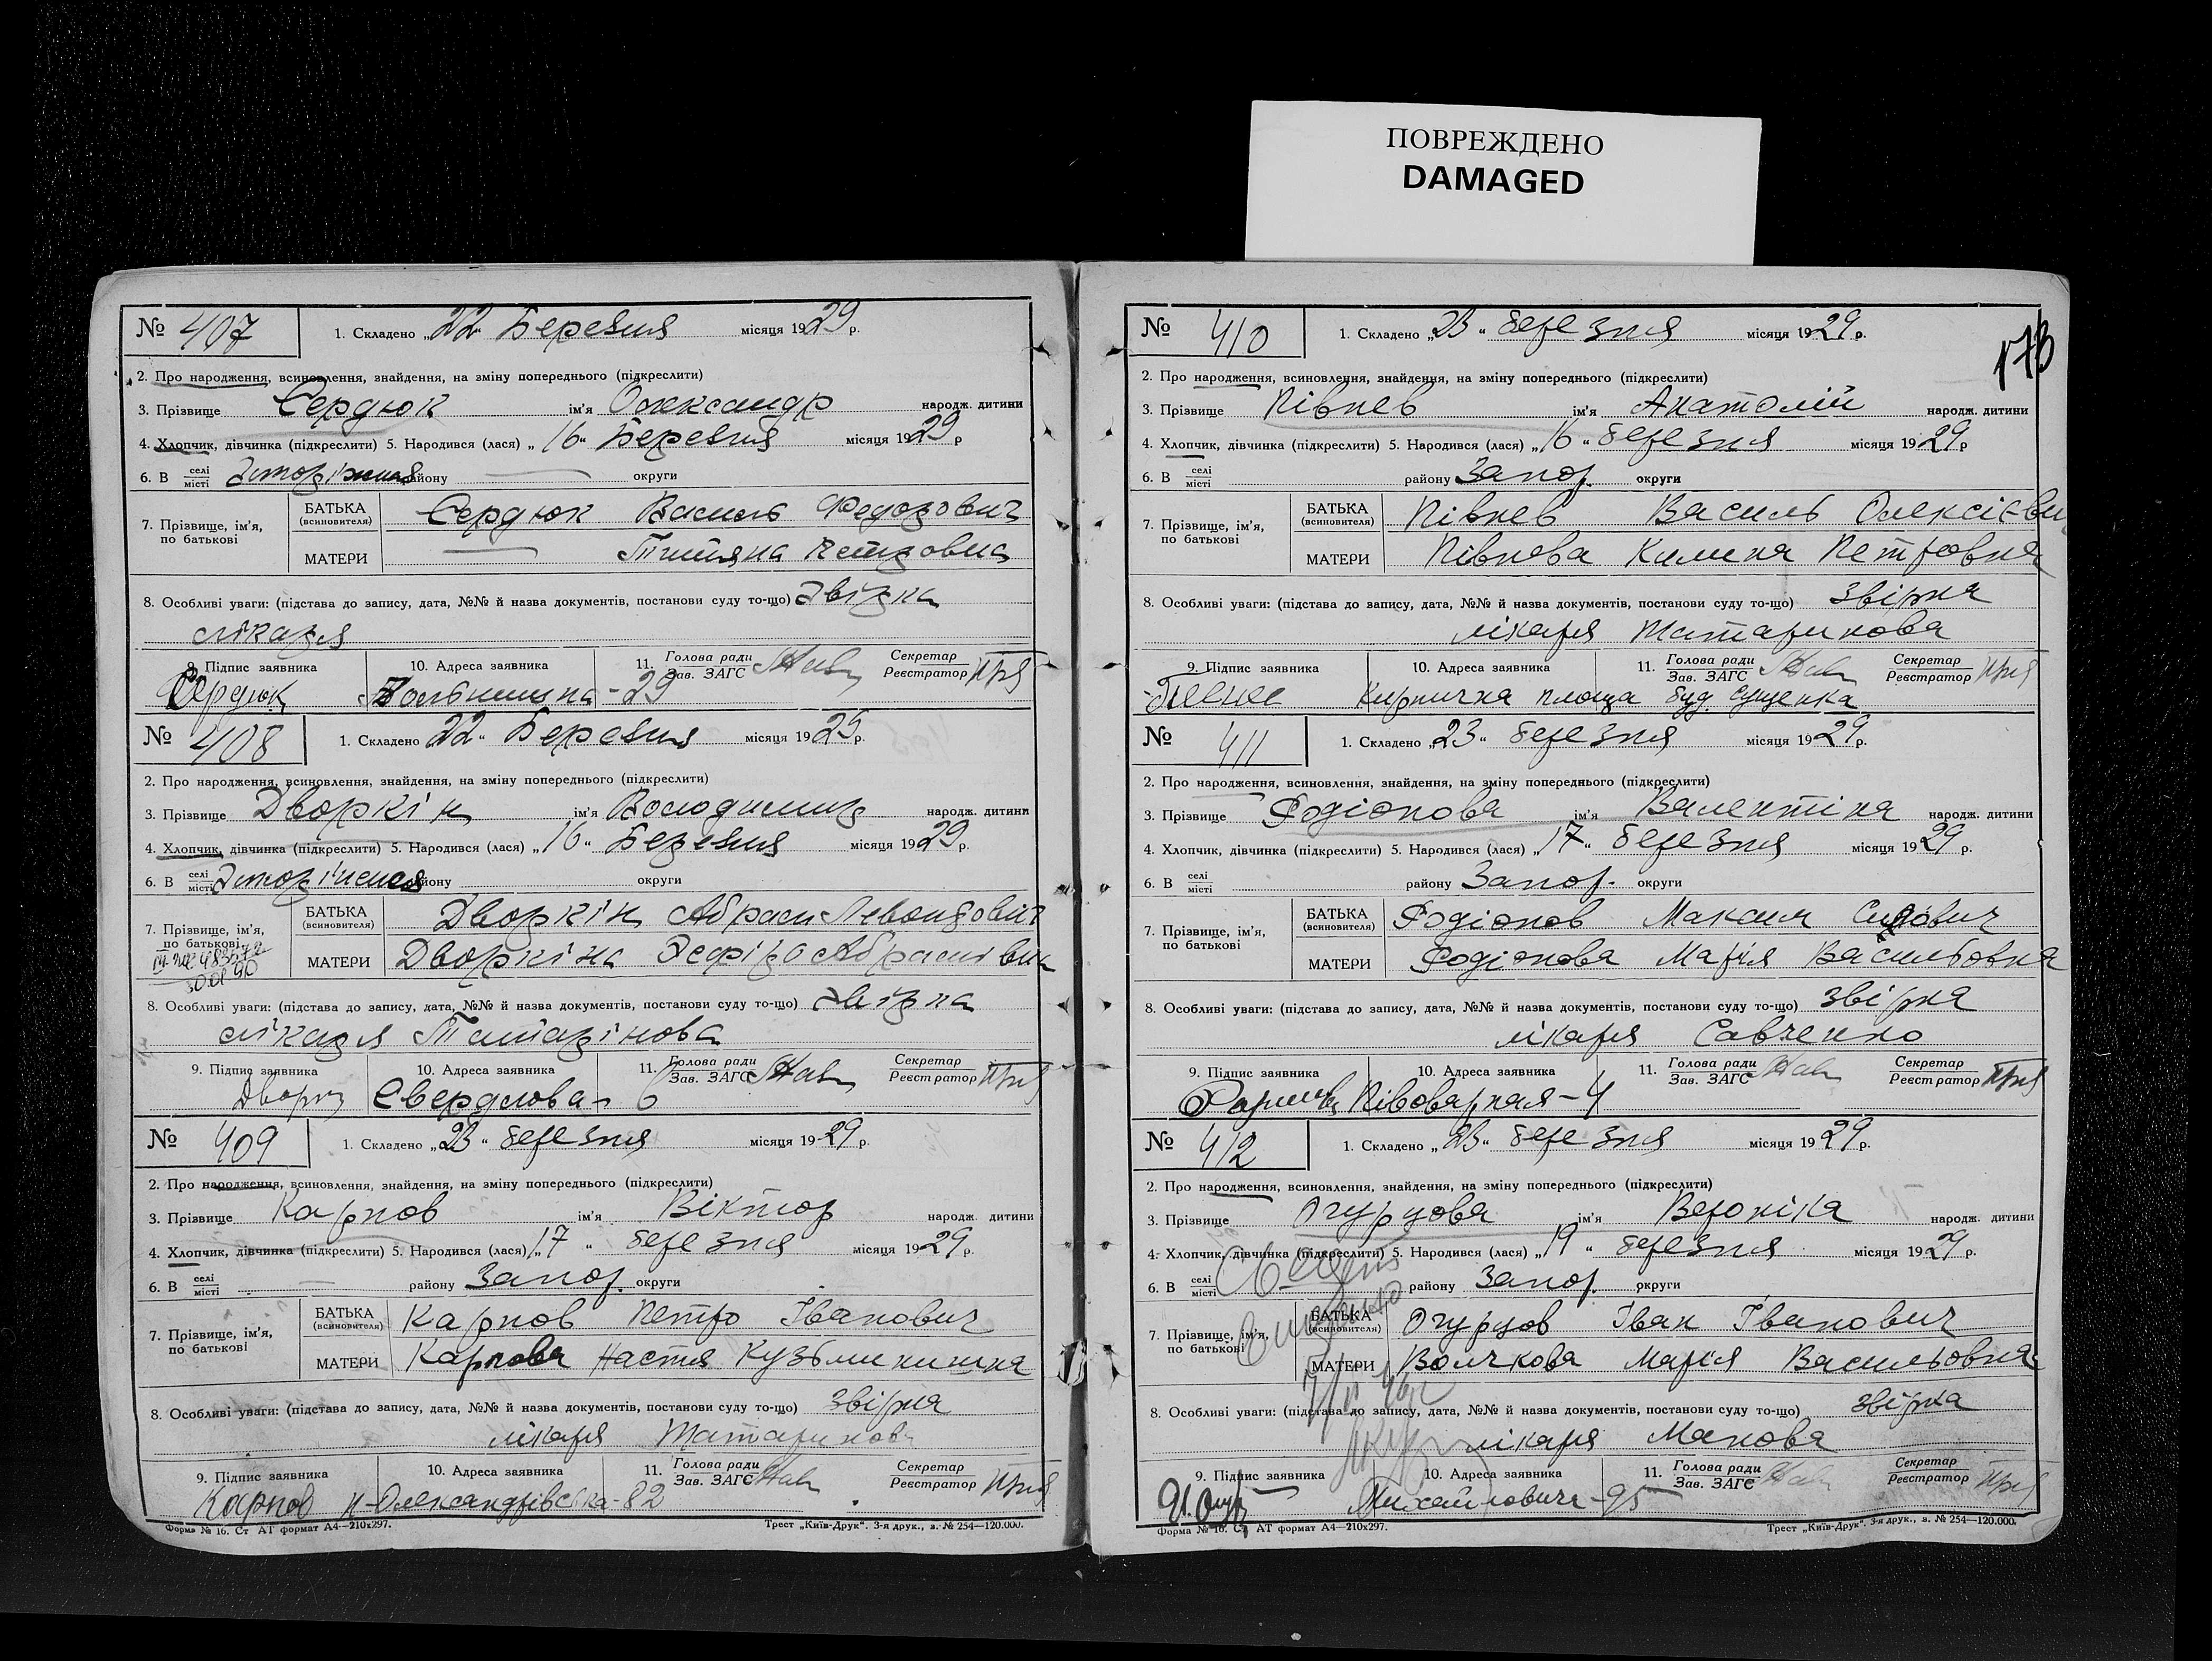 ПОВРЕЖДЕНО
DAMAGED
№ 407
1. Складено „22“ Березня місяця 1929 р.
2. Про народження, всиновлення, знайдення, на зміну попереднього (підкреслити)
3. Прізвище Сердюк ім'я Олександр народж. дитини
4. Хлопчик, дівчинка (підкреслити) 5. Народився (лася) „16“ Березня місяця 1929 р
6. В селі місті Запоріжжя району — округи
7. Прізвище, ім'я, по батькові
БАТЬКА (всиновителя) Сердюк Василь Федорович
МАТЕРИ — Титяна Петровна
8. Особливі уваги: (підстава до запису, дата, №№ й назва документів, постанови суду то-що) Звірка
лікаря
9. Підпис заявника 10. Адреса заявника 11. Голова ради Зав. ЗАГС Секретар Реєстратор
Сердюк - 29
№ 408
1. Складено „22“ Березня місяця 1929 р.
2. Про народження, всиновлення, знайдення, на зміну попереднього (підкреслити)
3. Прізвище Дворкін ім'я Володимир народж. дитини
4. Хлопчик, дівчинка (підкреслити) 5. Народився (лася) „16“ Березня місяця 1929 р.
6. В селі місті Запоріжжя району округи
7. Прізвище, ім'я, по батькові
БАТЬКА (всиновителя) Дворкін Абрам
МАТЕРИ Дворкіна Абрамівна
8. Особливі уваги: (підстава до запису, дата, №№ й назва документів, постанови суду то-що) Звірка
лікаря Татарінова
9. Підпис заявника 10. Адреса заявника 11. Голова ради Зав. ЗАГС Секретар Реєстратор
Свердлова - 6
№ 409
1. Складено „23“ березня місяця 1929 р.
2. Про народження, всиновлення, знайдення, на зміну попереднього (підкреслити)
3. Прізвище Карпов ім'я Віктор народж. дитини
4. Хлопчик, дівчинка (підкреслити) 5. Народився (лася) „17“ березня місяця 1929 р.
6. В селі місті — району Запор. округи
7. Прізвище, ім'я, по батькові
БАТЬКА (всиновителя) Карпов Петро Іванович
МАТЕРИ Карпова Настя
8. Особливі уваги: (підстава до запису, дата, №№ й назва документів, постанови суду то-що) звірка
лікаря Татаринова
9. Підпис заявника 10. Адреса заявника 11. Голова ради Зав. ЗАГС Секретар Реєстратор
Карпов Н-Олександрівська-82
Форма № 16. Ст АТ формат А4—210x297. Трест „Київ-Друк“. 3-я друк., з. № 254—120.000.
173
№ 410
1. Складено „23“ березня місяця 1929 р.
2. Про народження, всиновлення, знайдення, на зміну попереднього (підкреслити)
3. Прізвище Півнев ім'я Анатолій народж. дитини
4. Хлопчик, дівчинка (підкреслити) 5. Народився (лася) „16“ березня місяця 1929 р
6. В селі місті району Запор. округи
7. Прізвище, ім'я, по батькові
БАТЬКА (всиновителя) Півнев Василь Олексієви
МАТЕРИ Півнева Килина Петровна
8. Особливі уваги: (підстава до запису, дата, №№ й назва документів, постанови суду то-що) звірка
лікаря Татаринова
9. Підпис заявника 10. Адреса заявника 11. Голова ради Зав. ЗАГС Секретар Реєстратор
Кирпична площа буд. Сущенка
№ 411
1. Складено „23“ березня місяця 1929 р.
2. Про народження, всиновлення, знайдення, на зміну попереднього (підкреслити)
3. Прізвище Родіонова ім'я Валентіна народж. дитини
4. Хлопчик, дівчинка (підкреслити) 5. Народився (лася) „17“ березня місяця 1929 р.
6. В селі місті району Запор. округи
7. Прізвище, ім'я, по батькові
БАТЬКА (всиновителя) Родіонов Максим
МАТЕРИ Родіонова Марія Васильовна
8. Особливі уваги: (підстава до запису, дата, №№ й назва документів, постанови суду то-що) звірка
лікаря Савченко
9. Підпис заявника 10. Адреса заявника 11. Голова ради Зав. ЗАГС Секретар Реєстратор
Півоварная-4
№ 412
1. Складено „23“ березня місяця 1929 р.
2. Про народження, всиновлення, знайдення, на зміну попереднього (підкреслити)
3. Прізвище Огурцова ім'я Вероніка народж. дитини
4. Хлопчик, дівчинка (підкреслити) 5. Народився (лася) „19“ березня місяця 1929 р.
6. В селі місті району Запор. округи
7. Прізвище, ім'я, по батькові
БАТЬКА (всиновителя) Огурцов Іван Іванович
МАТЕРИ Волчкова Марія Васильовна
8. Особливі уваги: (підстава до запису, дата, №№ й назва документів, постанови суду то-що) звірка
лікаря Манова
9. Підпис заявника 10. Адреса заявника 11. Голова ради Зав. ЗАГС Секретар Реєстратор
Михайловича-95
Форма № 16. Ст АТ формат А4—210x297. Трест „Київ-Друк“. 3-я друк., з. № 254—120.000.